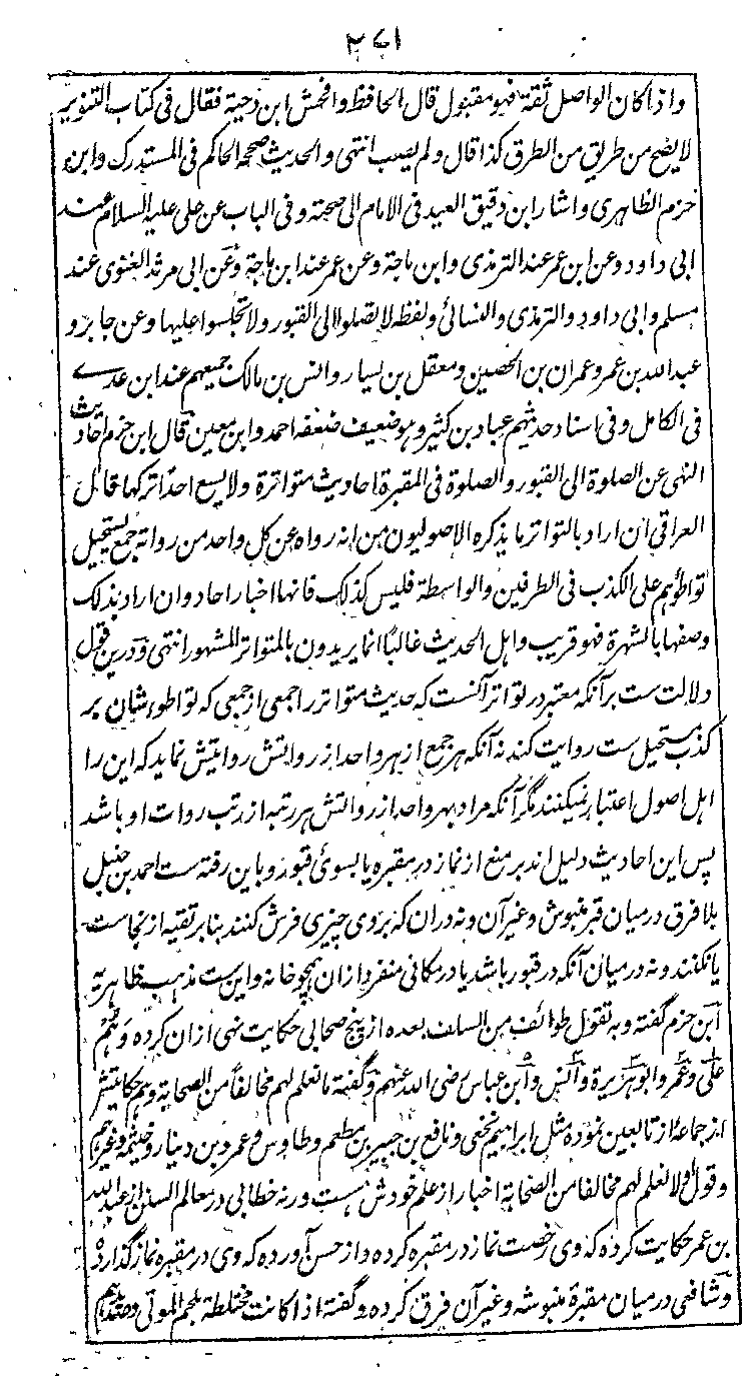 ۲۷۱
واذا كان الواصل ثقة فهو مقبول قال الحافظ وافحش ابن دحية فقال فى كتاب التنوير
لا يصح من طريق من الطرق كذا قال ولم يصب انتهى والحديث صححه الحاكم فى المستدرك وابن
حزم الظاهرى واشار ابن دقيق العيد فى الامام الى صحته وفى الباب عن على عليه السلام عند
ابى داود وعن ابن عمر عند الترمذى وابن ماجة وعن عمر عند ابن ماجة وعن ابى مرثد الغنوى عند
مسلم وابى داود والترمذى والنسائى ولفظه لا تصلوا الى القبور ولا تجلسوا عليها وعن جابر و
عبدالله بن عمر وعمران بن الحصين ومعقل بن يسار وانس بن مالك جميعهم عند ابن عدے
فى الكامل وفى اسناد حديثهم عباد بن كثير وهو ضعيف ضعفه احمد وابن معين قال ابن حزم احاديث
النهى عن الصلوة الى القبور والصلوة فى المقبرة احاديث متواترة ولا يسع احدا تركها قال
العراقى ان اراد بالتواتر ما يذكره الاصوليون من انه رواه عن كل واحد من رواته جمع يستحيل
تواطؤهم على الكذب فى الطرفين والواسطة فليس كذلك فانها اخبار احاد وان اراد بذلك
وصفها بالشهرة فهو قريب واهل الحديث غالبًا انما يريدون بالمتواتر المشهور انتهى ودرين قول
دلالت ست برآنكه معتبر در تواتر آنست كه حديث متواتر را جمعى از جمعى كه تواطوء شان بر
كذب مستحيل ست روايت كند نه آنكه هر جمع از هر واحد از رواتش روايتش نمايد كه اين را
اهل اصول اعتبار نميكنند مگر آنكه مراد بهر واحد از رواتش هر رتبه از رتب روات او باشد
پس اين احاديث دليل اند بر منع از نماز در مقبره يا بسوئ قبور وباين رفته ست احمد بن حنبل
بلا فرق در ميان قبر منبوش وغير آن ونه دران كه بروى چيزى فرش كنند بنا بر تقيه از نجاست
يا نكنند ونه در ميان آنكه در قبور باشد يا در مكانى منفرد ازان همچو خانه واين ست مذهب ظاهريه
ابن حزم گفته وبه تقول طوائف من السلف بعده از پنج صحابى حكايت نهى ازان كرده وهم
على وعمر وابوهريرة وانس وابن عباس رضى الله عنهم وگفته ما نعلم لهم مخالفاً من الصحابة وهم حكايتش
از جماعۀ از تابعين نموده مثل ابراهيم نخعى ونافع بن جبير بن مطعم وطاوس وعمرو بن دينار وخيثمة وغيرهم
وقول او لا نعلم لهم مخالفا من الصحابة اخبار از علم خودش هست ورنه خطابى در معالم السنن از عبدالله
بن عمر حكايت كرده كه وى رخصت نماز در مقبره كرده واز حسن آورده كه وى در مقبره نماز گذارد
وشافعى در ميان مقبرۀ منبوشه وغير آن فرق كرده وگفته اذا كانت مختلطة بلحم الموتى وصديدهم